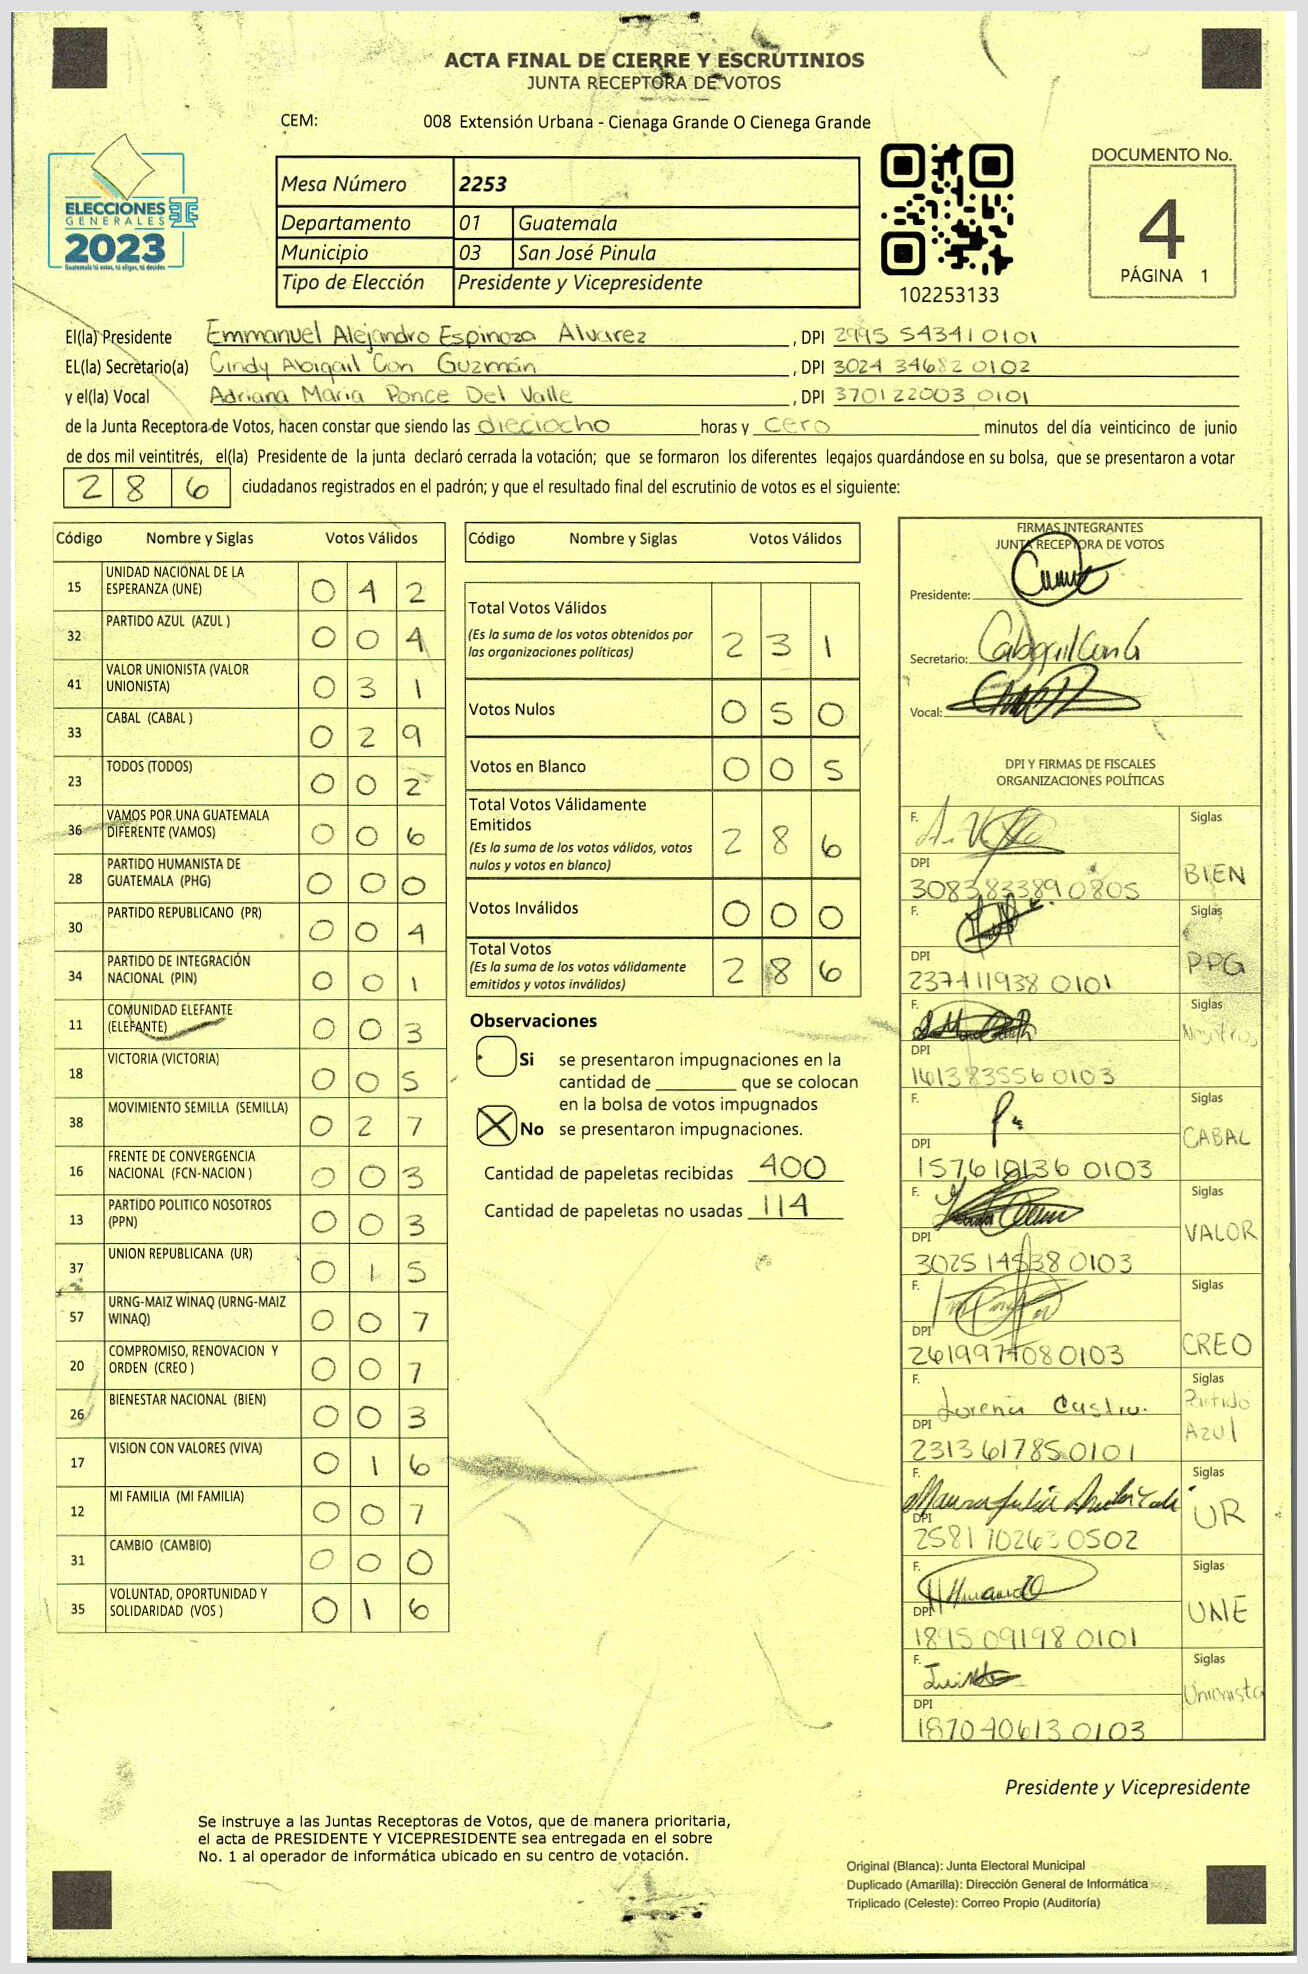 ACTA FINAL DE CIERRE Y ESCRUTINIOS
JUNTA RECEPTORA DE VOTOS
CEM: 008 Extensión Urbana - Cienaga Grande O Cienega Grande
ELECCIONES
GENERALES
2023
Guatemala tú votas, tú eliges, tú decides
Mesa Número 2253
Departamento 01 Guatemala
Municipio 03 San José Pinula
Tipo de Elección Presidente y Vicepresidente
102253133
DOCUMENTO No.
4
PÁGINA 1
El(la) Presidente Emmanuel Alejandro Espinoza Alvarez, DPI 2995 54341 0101
EL(la) Secretario(a) Cindy Abigail Con Guzmán, DPI 3024 34682 0102
y el(la) Vocal Adriana Maria Ponce Del Valle, DPI 370122003 0101
de la Junta Receptora de Votos, hacen constar que siendo las dieciocho horas y cero minutos del día veinticinco de junio
de dos mil veintitrés, el(la) Presidente de la junta declaró cerrada la votación; que se formaron los diferentes legajos guardándose en su bolsa, que se presentaron a votar
2 8 6 ciudadanos registrados en el padrón; y que el resultado final del escrutinio de votos es el siguiente:
Código Nombre y Siglas Votos Válidos
15 UNIDAD NACIONAL DE LA ESPERANZA (UNE) 0 4 2
32 PARTIDO AZUL (AZUL ) 0 0 4
41 VALOR UNIONISTA (VALOR UNIONISTA) 0 3 1
33 CABAL (CABAL ) 0 2 9
23 TODOS (TODOS) 0 0 2
36 VAMOS POR UNA GUATEMALA DIFERENTE (VAMOS) 0 0 6
28 PARTIDO HUMANISTA DE GUATEMALA (PHG) 0 0 0
30 PARTIDO REPUBLICANO (PR) 0 0 4
34 PARTIDO DE INTEGRACIÓN NACIONAL (PIN) 0 0 1
11 COMUNIDAD ELEFANTE (ELEFANTE) 0 0 3
18 VICTORIA (VICTORIA) 0 0 5
38 MOVIMIENTO SEMILLA (SEMILLA) 0 2 7
16 FRENTE DE CONVERGENCIA NACIONAL (FCN-NACION ) 0 0 3
13 PARTIDO POLITICO NOSOTROS (PPN) 0 0 3
37 UNION REPUBLICANA (UR) 0 1 5
57 URNG-MAIZ WINAQ (URNG-MAIZ WINAQ) 0 0 7
20 COMPROMISO, RENOVACION Y ORDEN (CREO ) 0 0 7
26 BIENESTAR NACIONAL (BIEN) 0 0 3
17 VISION CON VALORES (VIVA) 0 1 6
12 MI FAMILIA (MI FAMILIA) 0 0 7
31 CAMBIO (CAMBIO) 0 0 0
35 VOLUNTAD, OPORTUNIDAD Y SOLIDARIDAD (VOS ) 0 1 6
Código Nombre y Siglas Votos Válidos
Total Votos Válidos 2 3 1
(Es la suma de los votos obtenidos por
las organizaciones políticas)
Votos Nulos 0 5 0
Votos en Blanco 0 0 5
Total Votos Válidamente
Emitidos 2 8 6
(Es la suma de los votos válidos, votos
nulos y votos en blanco)
Votos Inválidos 0 0 0
Total Votos 2 8 6
(Es la suma de los votos válidamente
emitidos y votos inválidos)
Observaciones
Si se presentaron impugnaciones en la
cantidad de ________ que se colocan
en la bolsa de votos impugnados
No se presentaron impugnaciones.
Cantidad de papeletas recibidas 400
Cantidad de papeletas no usadas 114
FIRMAS INTEGRANTES
JUNTA RECEPTORA DE VOTOS
Presidente:
Secretario:
Vocal:
DPI Y FIRMAS DE FISCALES
ORGANIZACIONES POLÍTICAS
F. Siglas
DPI BIEN
308383389 0805
F. Siglas
DPI PPG
237411938 0101
F. Siglas
DPI Nosotros
161383556 0103
F. Siglas
DPI CABAL
157610136 0103
F. Siglas
DPI VALOR
302514538 0103
F. Siglas
DPI CREO
261997408 0103
F. Lorena Castro. Siglas
DPI Partido Azul
231361785 0101
F. Siglas
DPI UR
2581 70263 0502
F. Siglas
DPI UNE
1895 09198 0101
F. Siglas
DPI Unionista
187040613 0103
Presidente y Vicepresidente
Se instruye a las Juntas Receptoras de Votos, que de manera prioritaria,
el acta de PRESIDENTE Y VICEPRESIDENTE sea entregada en el sobre
No. 1 al operador de informática ubicado en su centro de votación.
Original (Blanca): Junta Electoral Municipal
Duplicado (Amarilla): Dirección General de Informática
Triplicado (Celeste): Correo Propio (Auditoría)